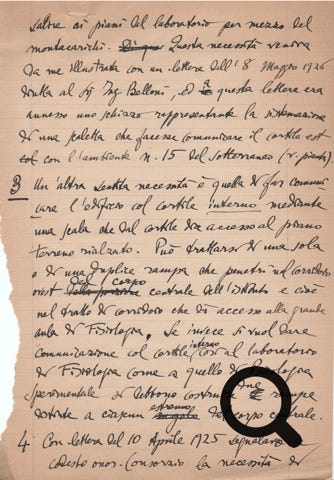 salire ai piani del laboratorio per mezzo del
montacarichi. Di qua Questa necessità veniva
da me illustrata con un lettera dell'8 Maggio 1926
diretta al Sig Ing Belloni, ed a questa lettera era
annesso uno schizzo rappresentante la sistemazione
di una scaletta che facesse comunicare il cortile est
col con l'ambiente n. 15 del sotterraneo (v. pianta)
3 Un'altra necessità è quella di far comuni
care l'edificio col cortile interno mediante
una scala che dal cortile dia accesso al piano
terreno rialzato. Può trattarsi di una sola
o di una duplice rampa che penetri nel corridoio
del corpo
centrale dell'Istituto e cioè
nel tratto di corridoio che dà accesso alla grande
aula di Fisiologia. Se invece si vuol dare
interno
comunicazione col cortile così al laboratorio
di Fisiologia come a quello di Patologia
sperimentale si debbono costruire due rampe
distinte a ciascun
estremo
angolo del corpo centrale.
4. Con lettera del 10 Aprile 1925 segnalavo
codesto onor. Consorzio la necessità di